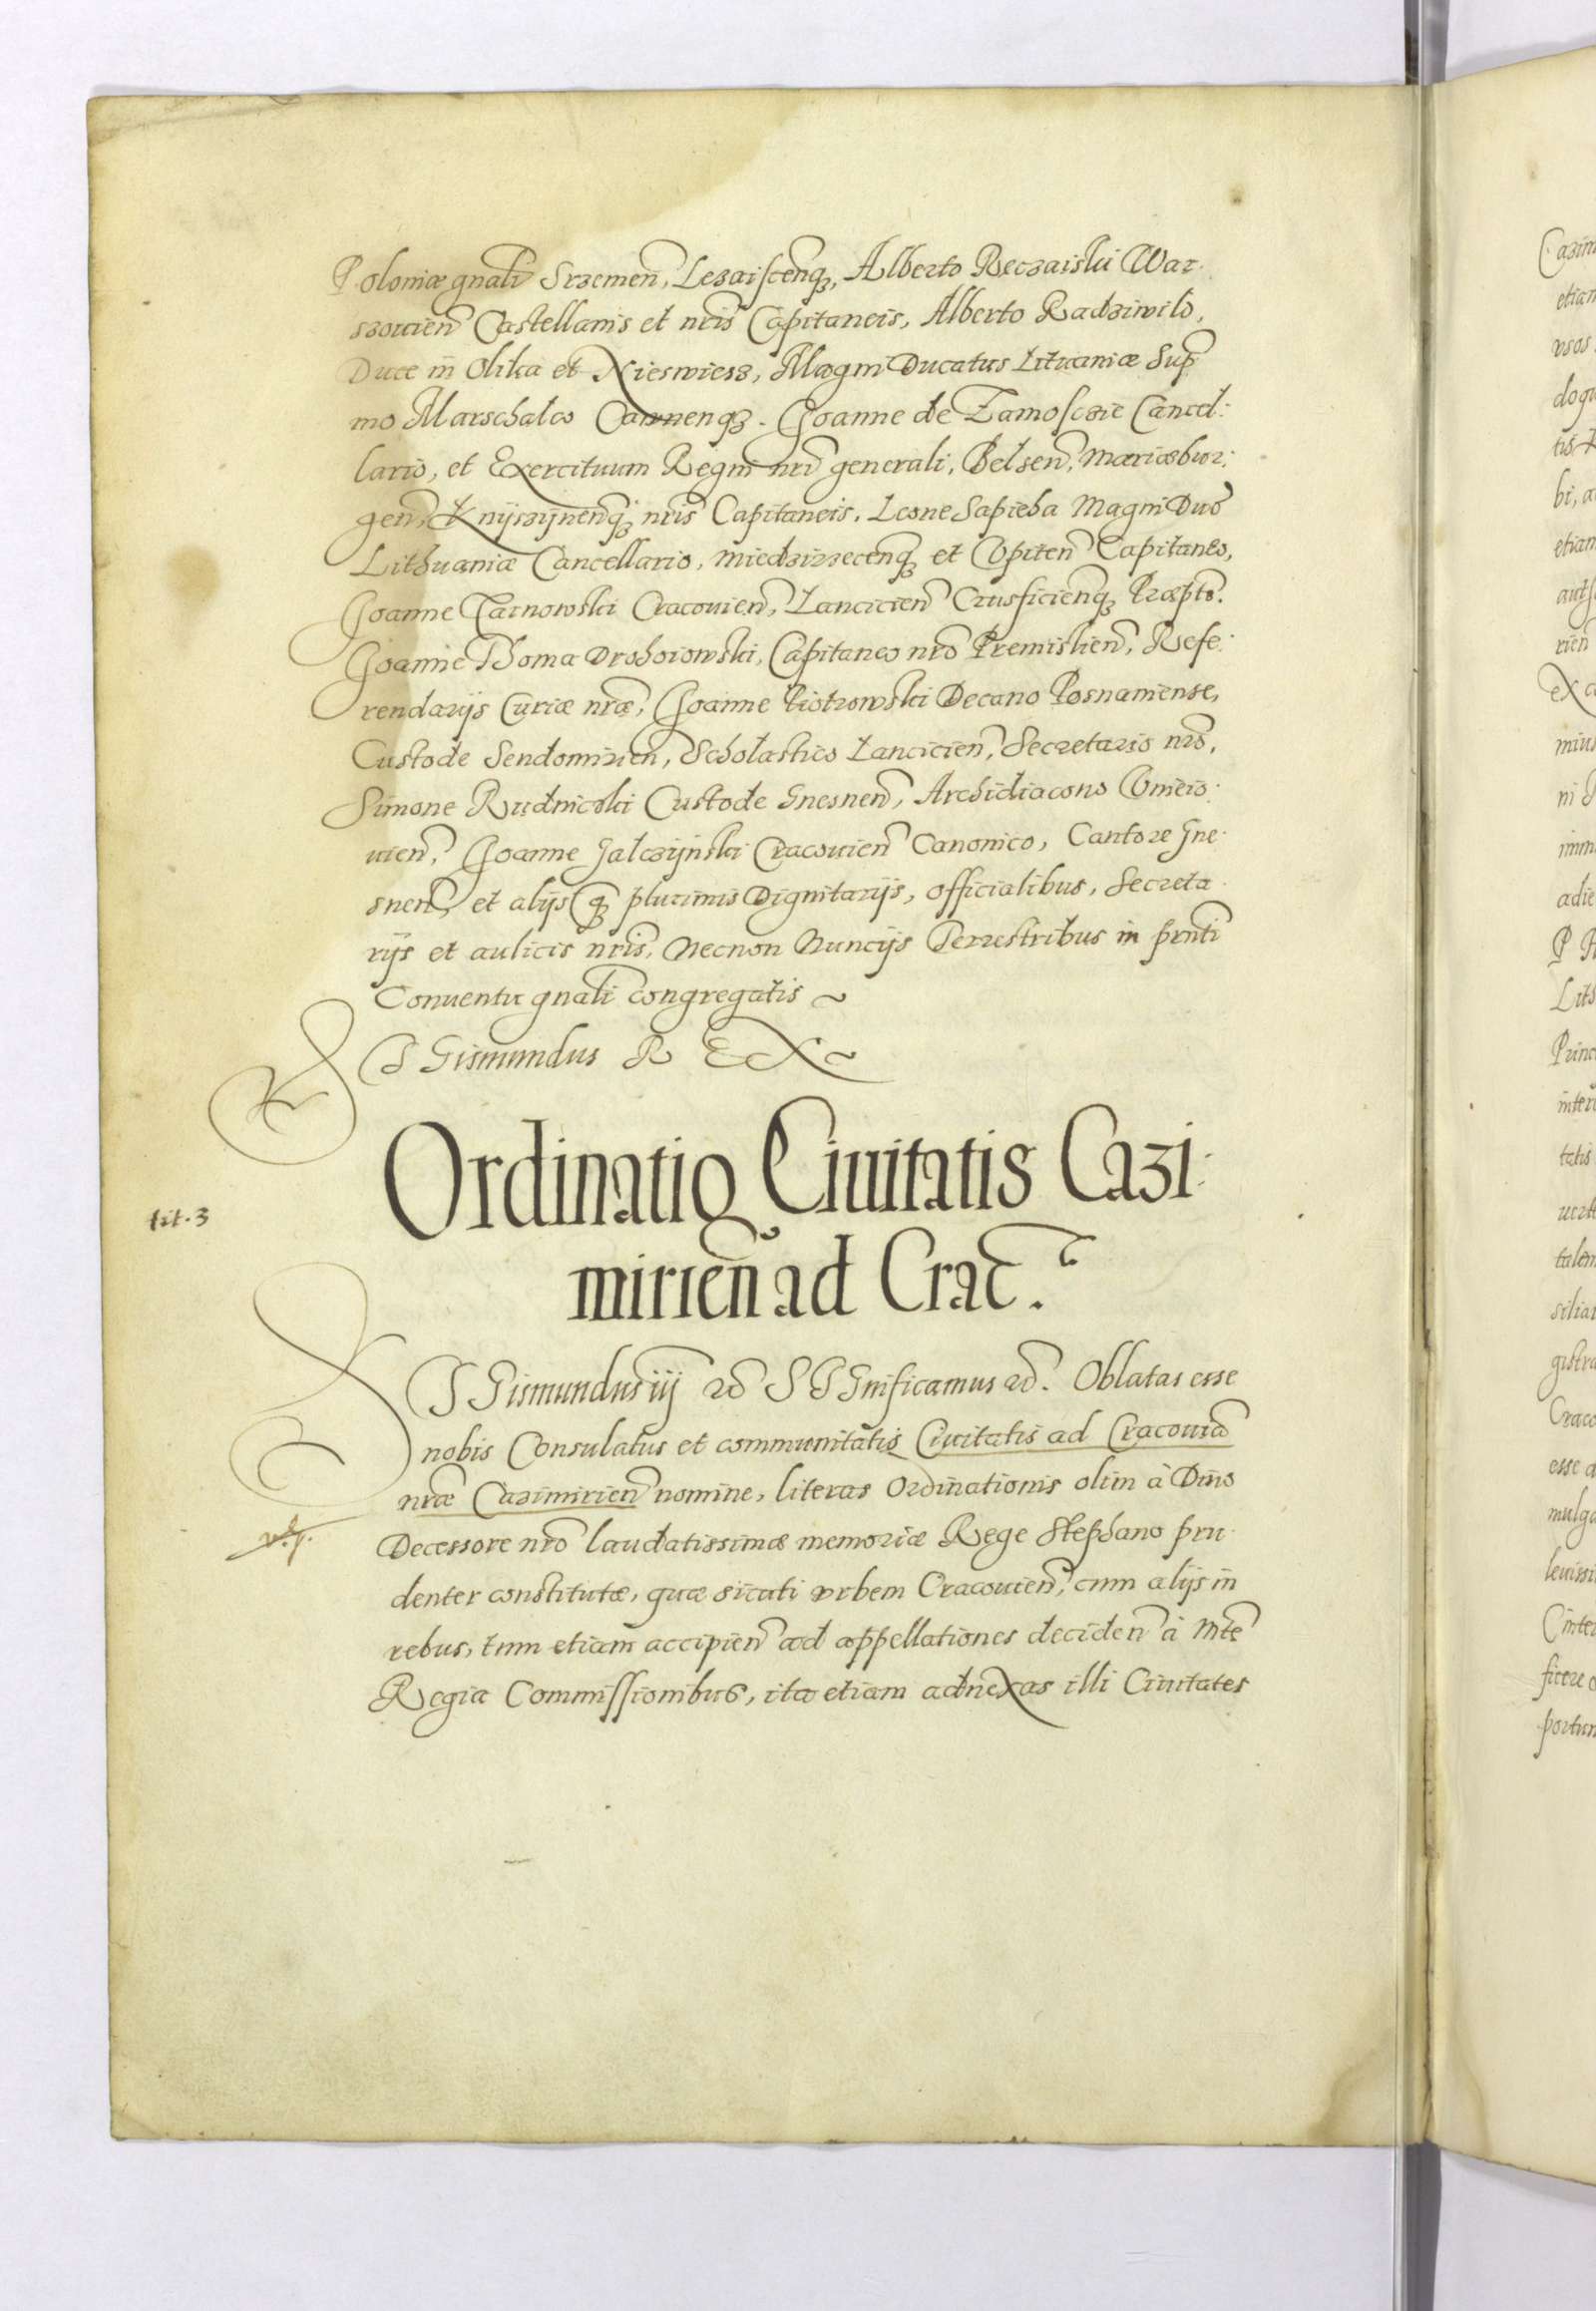 Poloniæ gnali Srzemen, Lezaiscenq, Alberto Reczaiski War:
szouien Castellanis et nris Capitaneis, Alberto Radziwilo,
Duce in Olika et Nieswiesz, Magni Ducatus Lituaniæ Sup
mo Marschalco Caunenq. Joanne de Zamoscie Cancel:
lario, et Exercituum Regni nri generali, Belsen, Mariæbur:
gen, Knijszijnenq nris Capitaneis. Leone Sapieha Magni Duc
Lithuaniæ Cancellario, Miedzirzecenq et Opiten Capitaneo,
Joanne Tarnowski Cracouien, Lancicien Crusficienq Præpto.
Joanne Thoma Drohoiowski, Capitaneo nro Premislien, Refe:
rendarijs Curiæ nræ, Joanne Piotrowski Decano Posnaniense,
Custode Sendomirien, Scholastico Lancicien, Secretario nro,
Simone Rudnicski Custode Gnesnen, Archidiacono
uien, Joanne Galczijnski Cracouien Canonico, Cantore Gne:
snen, et alijs q plurimis Dignitarijs, officialibus, Secreta
rijs et aulicis nris, Necnon Nuncijs Terrestribus in prnti
Conuentu gnali congregatis
SIGismundus REX
Ordinatio Ciuitatis Cazi:
mirien ad Crac.
lit. 3
SIGismundus iij SIGnificamus Oblatas esse
nobis Consulatus et communitatis Ciuitatis ad Cracouia
nræ Cazimirien nomine, literas Ordinationis olim à Diuo
Decessore nro laudatissimæ memoriæ Rege Stephano pru
denter constitutæ, quæ sicuti vrbem Cracouien, cum alijs in
rebus, tum etiam accipien ad appellationes deciden à Mte
Regia Commissionibus, ita etiam adnexas illi Ciuitates